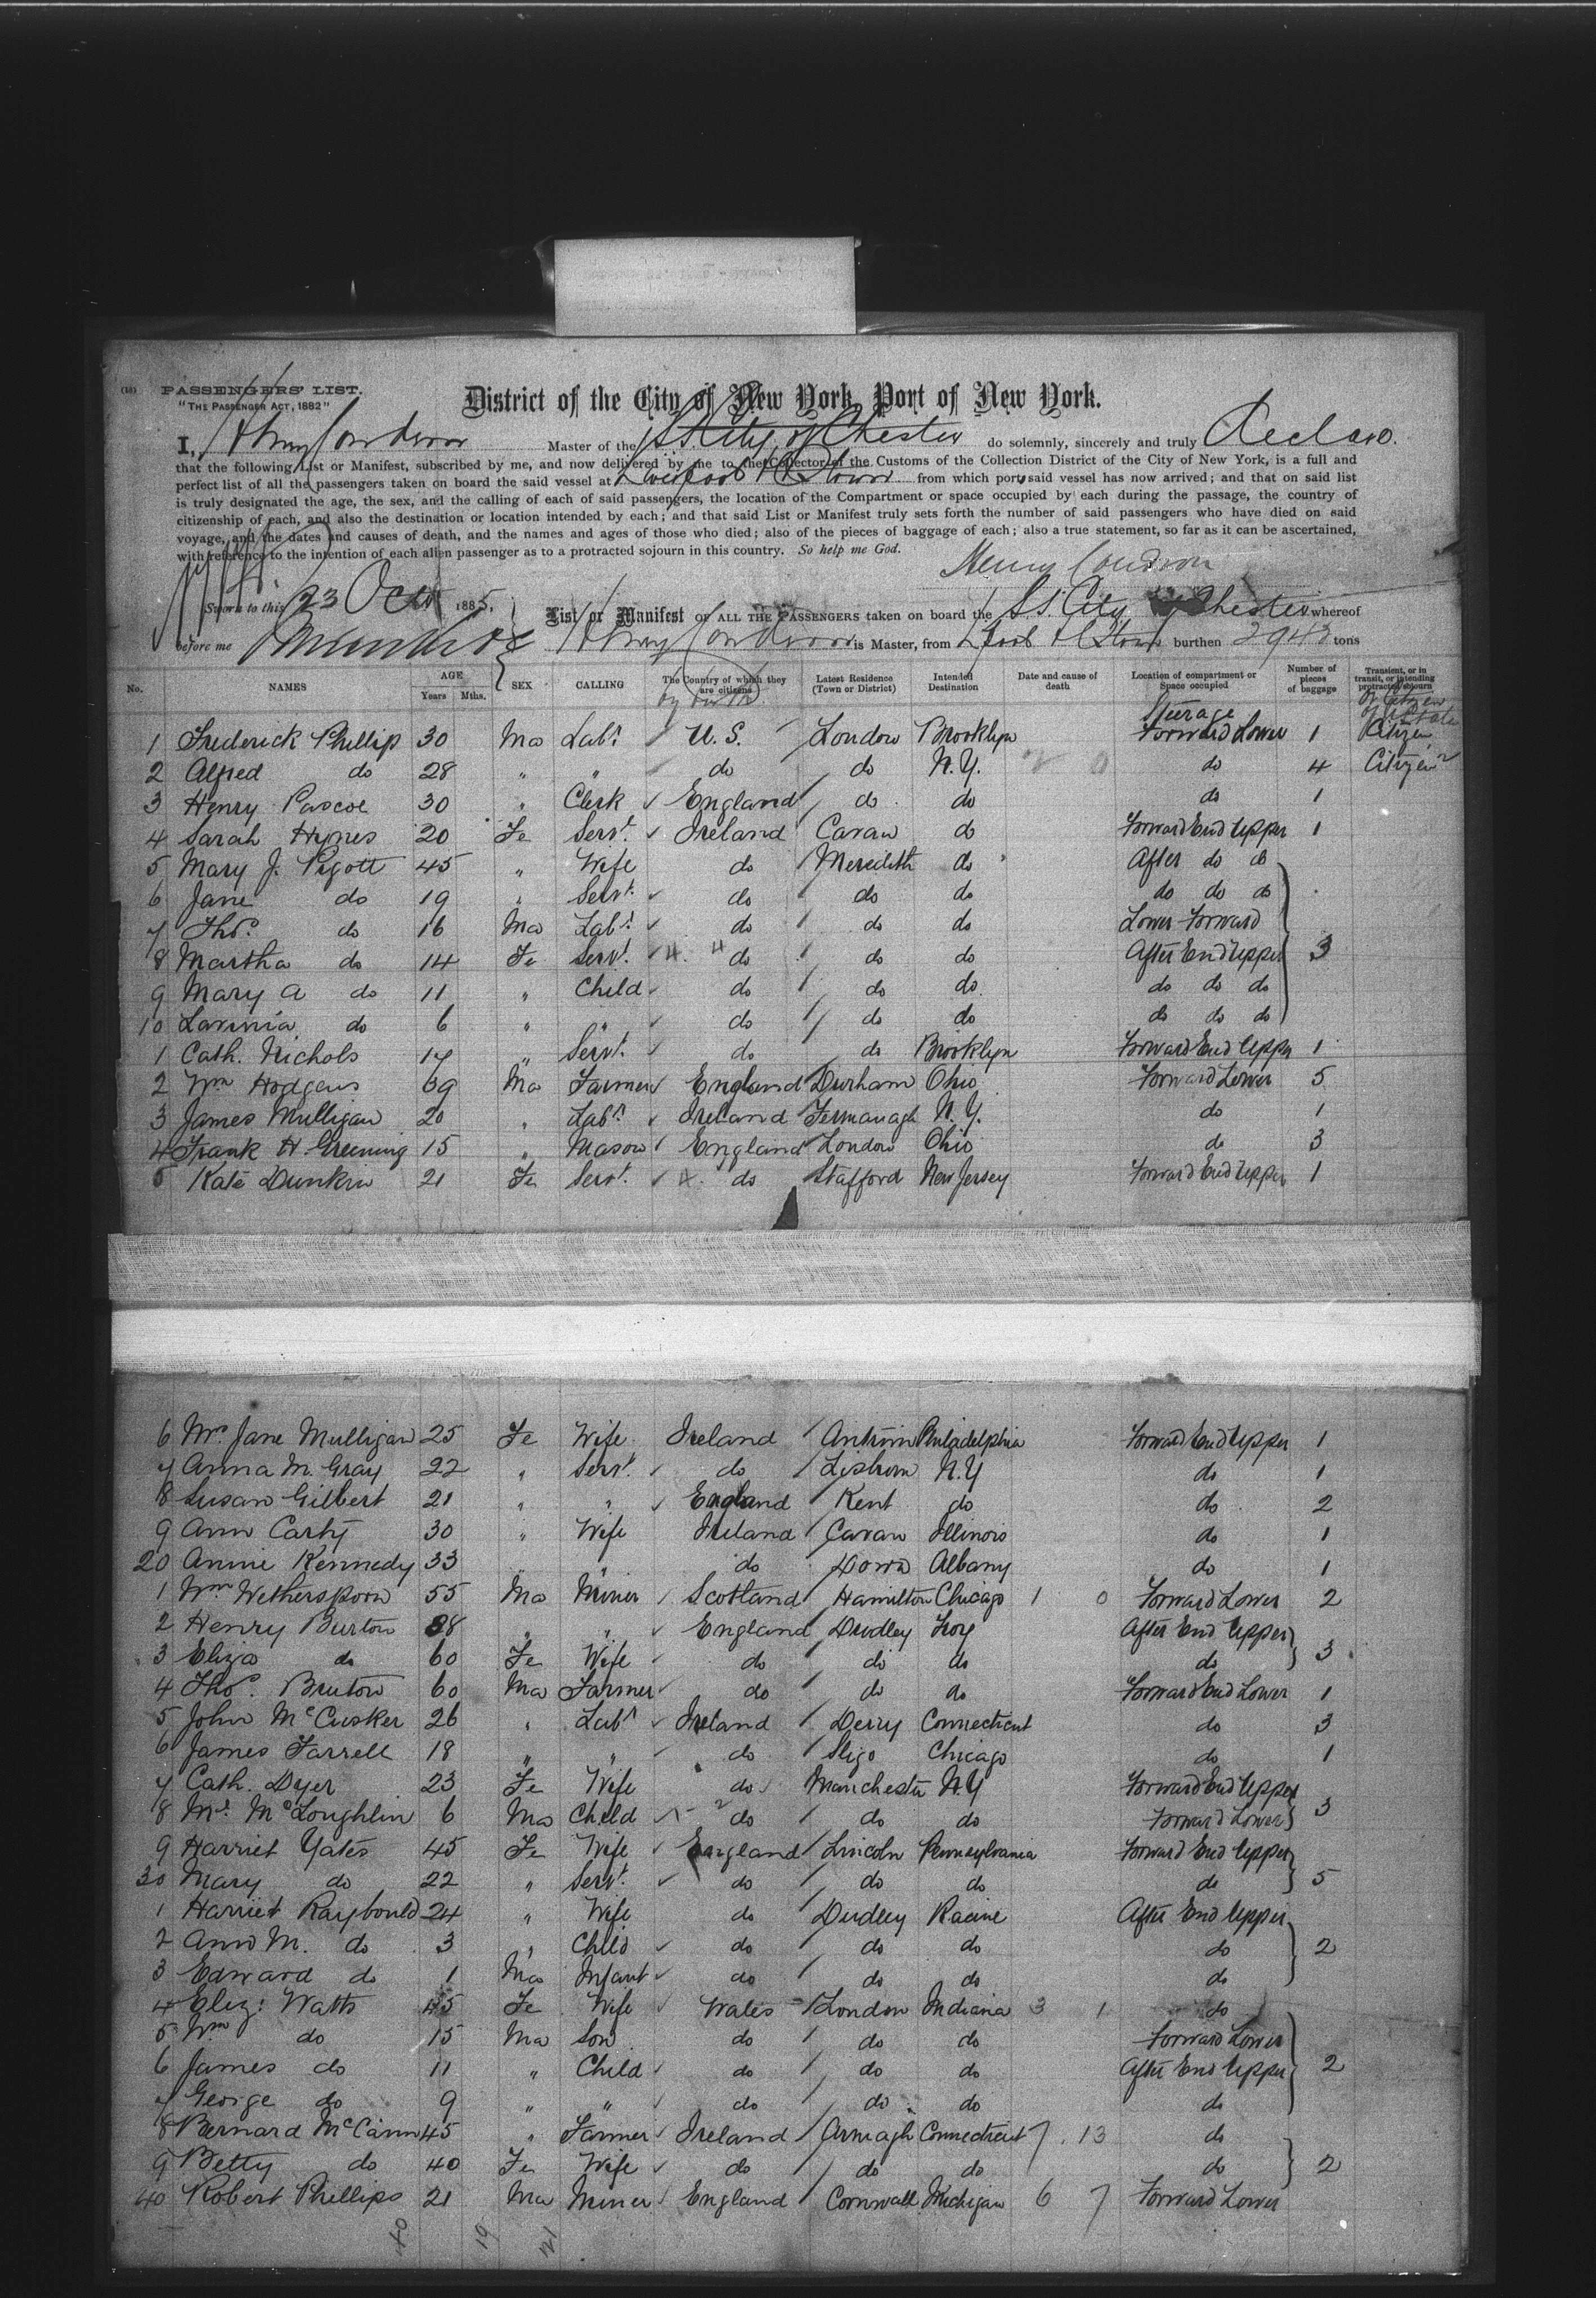 (18) PASSENGERS' LIST.
"THE PASSENGER ACT, 1882"
District of the City of New York, Port of New York.
I, Henry Condron Master of the S.S. City of Chester do solemnly, sincerely and truly Declare.
that the following List or Manifest, subscribed by me, and now delivered by me to the Collector of the Customs of the Collection District of the City of New York, is a full and
perfect list of all the passengers taken on board the said vessel at Liverpool & QTown from which port, said vessel has now arrived; and that on said list
is truly designated the age, the sex, and the calling of each of said passengers, the location of the Compartment or space occupied by each during the passage, the country of
citizenship of each, and also the destination or location intended by each; and that said List or Manifest truly sets forth the number of said passengers who have died on said
voyage, and the dates and causes of death, and the names and ages of those who died; also of the pieces of baggage of each; also a true statement, so far as it can be ascertained,
with reference to the intention of each alien passenger as to a protracted sojourn in this country. So help me God.
Henry Condron
Sworn to this 23 Oct 1885,
before me
List or Manifest OF ALL THE PASSENGERS taken on board the S.S. City of Chester whereof
Henry Condron is Master, from Lpool & QTown burthen 2943 tons
No. NAMES AGE Years Mths. SEX CALLING The Country of which they are citizens Latest Residence (Town or District) Intended Destination Date and cause of death Location of compartment or Space occupied Number of pieces of baggage Transient, or in transit, or intending protracted sojourn
by birth
Steerage
1 Frederick Phillip 30 Ma Labr U.S. London Brooklyn Forward Lower 1 Citizen
2 Alfred do 28 " " do do N.Y. do 4 Citizen
3 Henry Pascoe 30 " Clerk England do do do 1
4 Sarah Hynes 20 Fe Servt. Ireland Cavan do Forward End Upper 1
5 Mary J. Pigott 45 " Wife do Meredith do After do do
6 Jane do 19 " Servt. do do do do do do
7 Thos. do 16 Ma Labr. do do do Lower Forward
8 Martha do 14 Fe Servt. do do do After End Upper 3
9 Mary A do 11 " Child do do do do do do
10 Lavinia do 6 " " do do do do do do
1 Cath. Nichols 17 " Servt. do do Brooklyn Forward End Upper 1
2 Wm Hodgens 39 Ma Farmer England Durham Ohio Forward Lower 5
3 James Mulligan 20 " Labr. Ireland Fermanagh N.Y. do 1
4 Frank H. Greening 15 " Mason England London Ohio do 3
5 Kate Dunkin 21 Fe Servt. do Stafford New Jersey Forward End Upper 1
6 Mrs Jane Mulligan 25 Fe Wife Ireland Antrim Philadelphia Forward End Upper 1
7 Anna M. Gray 22 " Servt. do N.Y do 1
8 Susan Gilbert 21 " " England Kent do do 2
9 Ann Carty 30 " Wife Ireland Cavan Illinois do 1
20 Annie Kennedy 33 " " do Down Albany do 1
1 Wm Wetherspoon 55 Ma Miner Scotland Hamilton Chicago 1 0 Forward Lower 2
2 Henry Burton " " England Dudley Troy After End Upper
3 Eliza do 60 Fe Wife do do do do 3
4 Thos. Bruton 60 Ma Farmer do do do Forward End Lower 1
5 John McCusker 26 " Labr Ireland Derry Connecticut do 3
6 James Farrell 18 " " do Sligo Chicago do 1
7 Cath. Dyer 23 Fe Wife do Manchester N.Y Forward End Upper
8 McLoughlin 6 Ma Child do do do Forward Lower 3
9 Harriet Yates 45 Fe Wife England Lincoln Pennsylvania Forward End Upper
30 Mary do 22 " Servt. do do do do 5
1 Harriet Raybould 24 " Wife do Dudley Racine After End Upper
2 Ann M. do 3 " Child do do do do 2
3 Edward do 1 Ma Infant do do do do
4 Eliz: Watts 45 Fe Wife Wales London Indiana 3 1 do
5 Wm do 15 Ma Son do do do Forward Lower
6 James do 11 " Child do do do After End Upper 2
7 George do 9 " " do do do do
8 Bernard McCann 45 " Farmer Ireland Armagh Connecticut 7 13 do
9 Betty do 40 Fe Wife do do do do 2
40 Robert Phillips 21 Ma Miner England Cornwall Michigan 6 7 Forward Lower
40 19 21